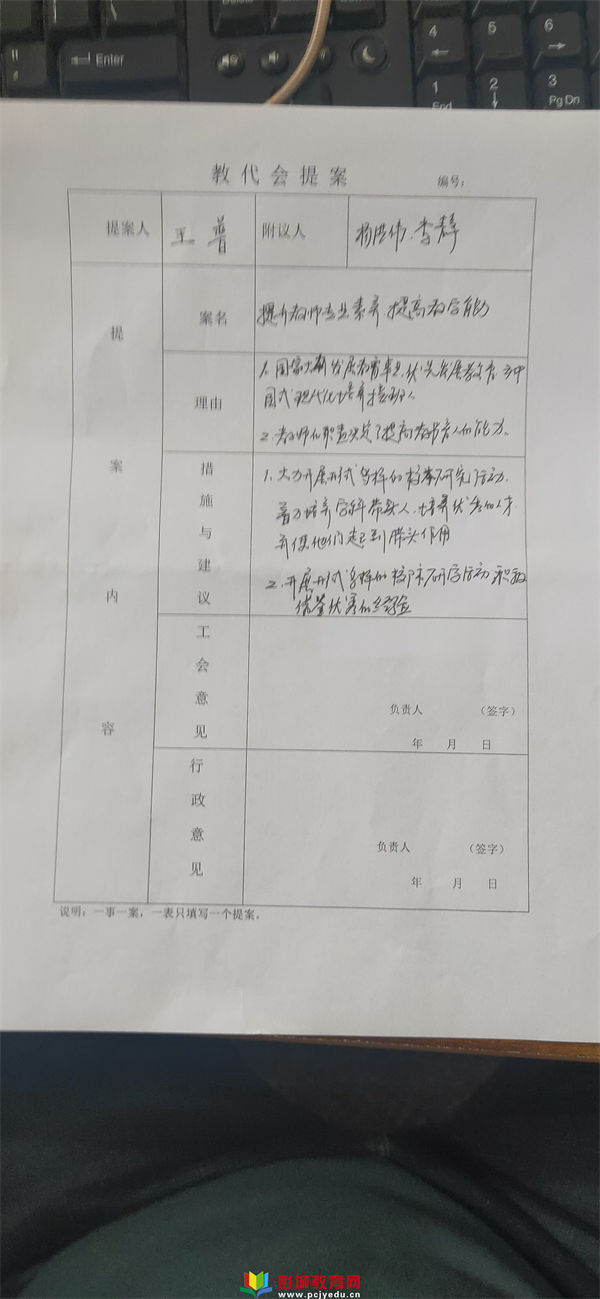 Enter
4
5
6
1
End
2
3
Pg Dn
教代会提案
编号：
提案人
王普
附议人
杨 伟.李静
提案内容
案名
提升教师专业素养 提高教学能力
理由
1.国家大 发展教育事业，优先发展教育，为中
国式现代化培养接班人
2.教师的职责决定了提高教书育人的能力。
措施与建议
1.大力开展形式多样的校本研究活动，
着力培养学科带头人，培养优秀的人才
并使他们起到带头作用
2.开展形式多样的校际研学活动 积极
借鉴优秀的经验
工会意见
负责人 （签字）
年 月 日
行政意见
负责人 （签字）
年 月 日
说明：一事一案，一表只填写一个提案。
彭城教育网
www.pcjyedu.cn